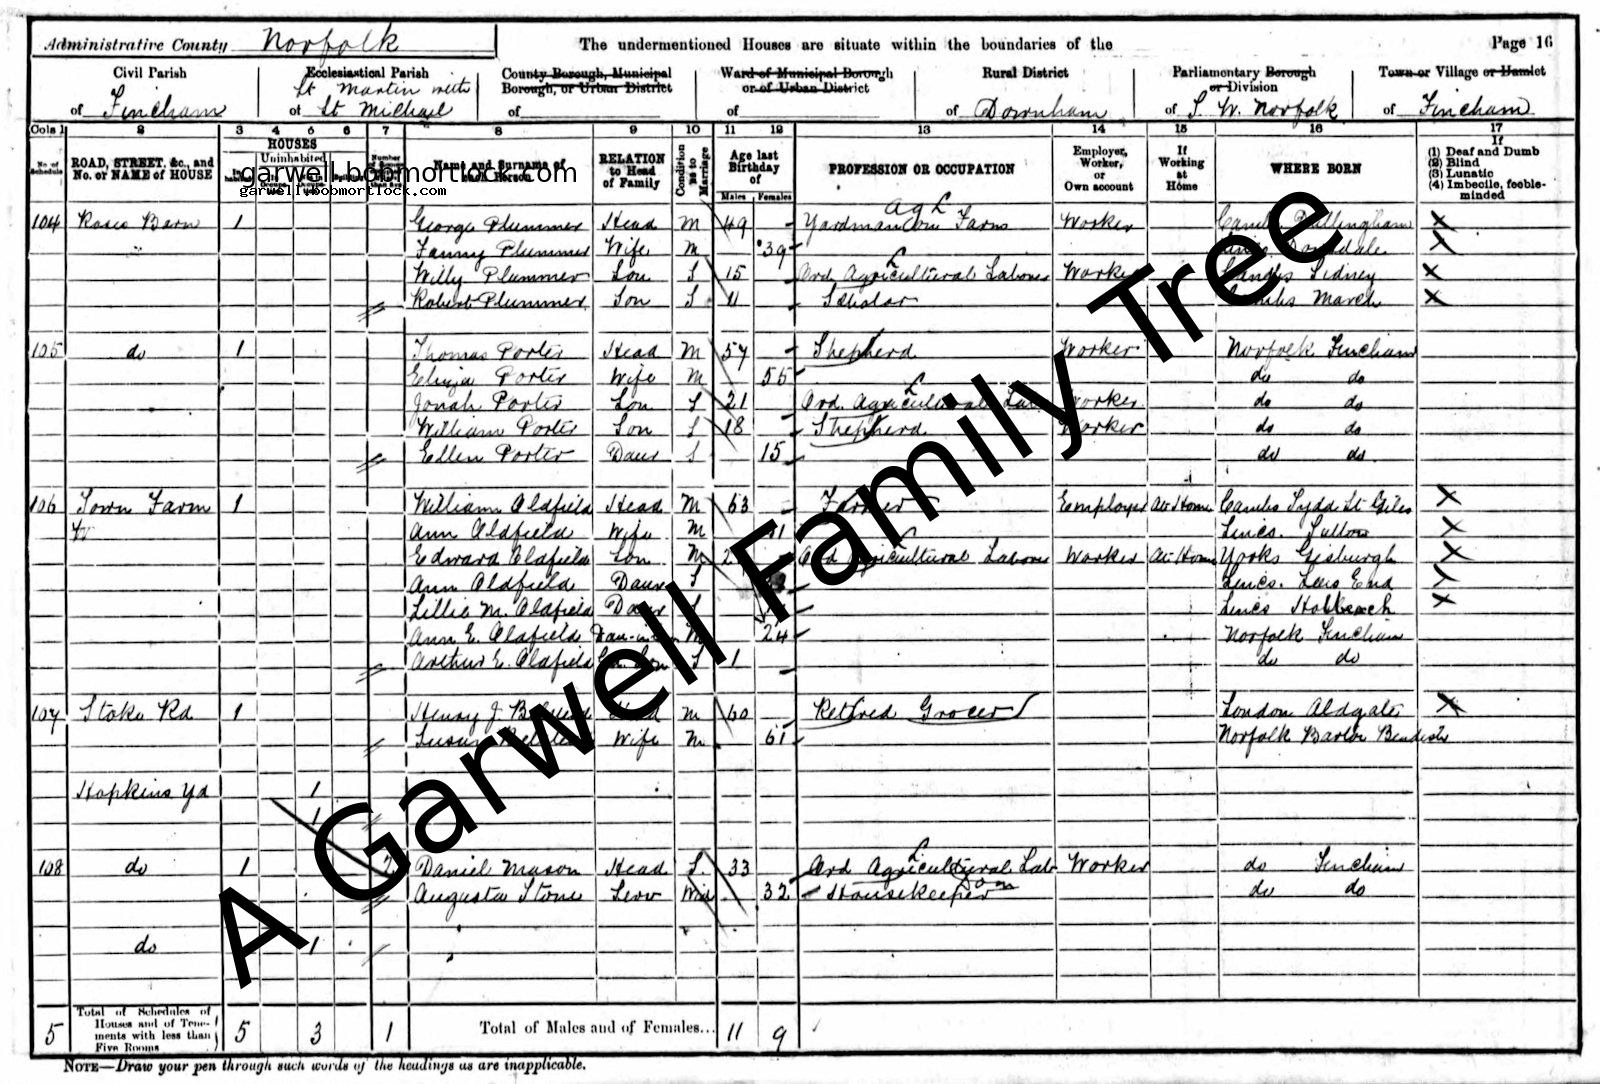 Administrative County Norfolk The undermentioned Houses are situate within the boundaries of the Page 16
Civil Parish Ecclesiastical Parish County Borough, Municipal Borough, or Urban District Ward of Municipal Borough or of Urban District Rural District Parliamentary Borough or Division Town or Village or Hamlet
of Fincham of St Martin with St Michael of of of Downham of S. W. Norfolk of Fincham
Cols 1 2 3 4 5 6 7 8 9 10 11 12 13 14 15 16 17
No. of Schedule ROAD, STREET, &c., and No. or NAME of HOUSE HOUSES Uninhabited Number Name and Surname of each Person RELATION to Head of Family Condition as to Marriage Age last Birthday of Males Females PROFESSION OR OCCUPATION Employer, Worker, or Own account If Working at Home WHERE BORN If (1) Deaf and Dumb (2) Blind (3) Lunatic (4) Imbecile, feeble-minded
garwell.bobmortlock.com
garwell.bobmortlock.com
104 Barn 1 George Plummer Head M 49 Yardman on Farm Ag L Worker
Fanny Plummer Wife M 39
Willy Plummer Son S 15 Ord Agricultural Labourer L Worker Cambs Sidney X
Robert Plummer Son S 11 Scholar Cambs March X
105 do 1 Thomas Porter Head M 57 Shepherd Worker Norfolk Fincham
Porter Wife M 55 do do
Jonah Porter Son S 21 Ord. Agricultural Lab L Worker do do
William Porter Son S 18 Shepherd Worker do do
Ellen Porter Daur S 15 do do
106 Town Farm 1 William Oldfield Head M 63 Farmer Employer At Home Cambs Tydd St Giles X
Ann Oldfield Wife M Lincs. Sutton X
Edward Oldfield Son M Ord Agricultural Labourer Worker At Home Yorks Gisburgh X
Ann Oldfield Daur S Lincs. End X
Lillie M. Oldfield Daur S Lincs Holbeach X
Ann E. Oldfield M 24 Norfolk Fincham
Arthur E. Oldfield Son S 1 do do
107 Stoke Rd 1 Henry J. Head M 60 Retired Grocer London Aldgate X
Susan Wife M 61 Norfolk Barton Bendish
Hopkins Yd 1
1
108 do 1 2 Daniel Mason Head S. 33 Ord Agricultural Lab L Worker do Fincham
Augusta Stone Serv Wid 32 Housekeeper Dom do do
do 1
5 Total of Schedules of Houses and of Tenements with less than Five Rooms 5 3 1 Total of Males and of Females... 11 9
NOTE—Draw your pen through such words of the headings as are inapplicable.
A Garwell Family Tree